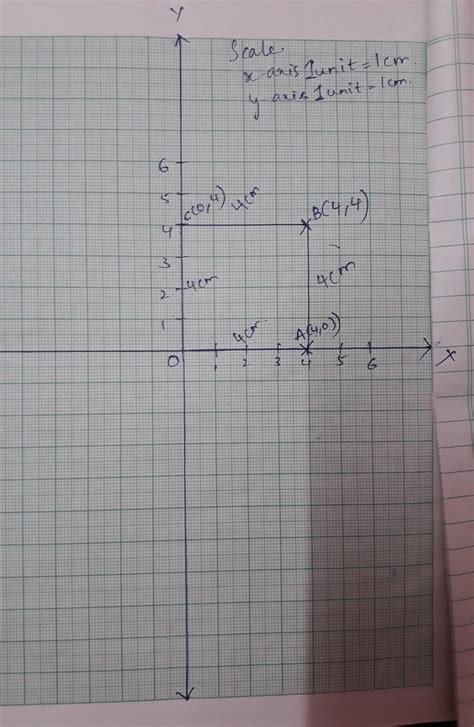 Y
Scale
x-axis 1unit = 1cm.
y-axis 1unit = 1cm.
6
5
C(0,4) 4cm B(4,4)
4
3
4cm
2 4cm
1
4cm A(4,0)
0 1 2 3 4 5 6 X